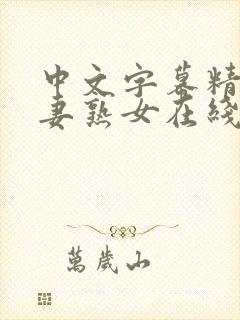 中文字幕精
妻熟女在綫
萬歲山